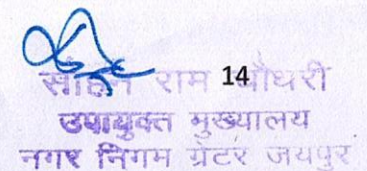 सोहन राम चौधरी
14
उपायुक्त मुख्यालय
नगर निगम ग्रेटर जयपुर